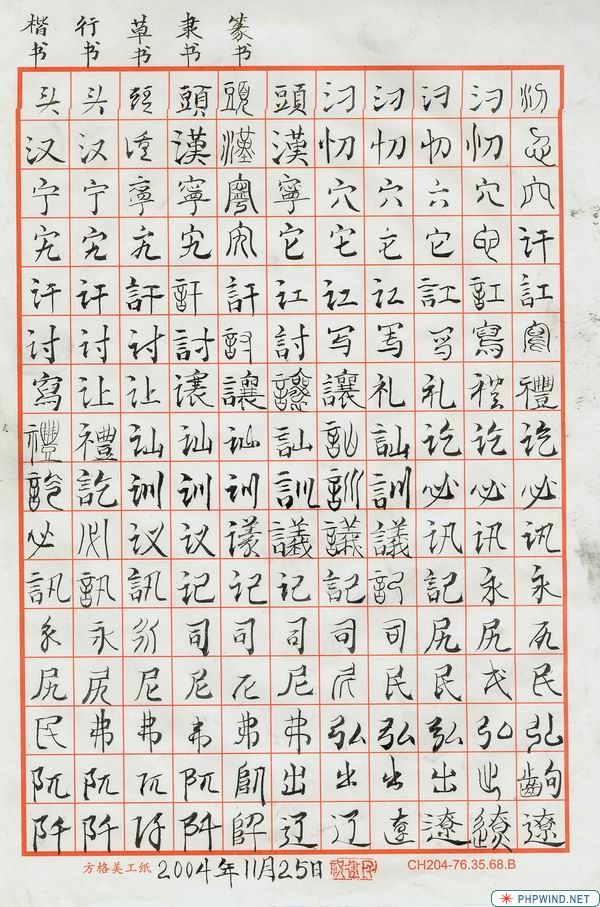 楷书 行书 草书 隶书 篆书
头 头 頭 頭 頭 頭 汈 汈 汈 汈 汈
汉 汉 漢 漢 漢 漢 忉 忉 忉 忉
宁 宁 寧 寧 寧 寧 穴 穴 穴 穴 穴
宄 宄 宄 宄 宄 它 它 它 它 它 讦
讦 讦 訐 訐 訐 讧 讧 讧 訌 訌 訌
讨 讨 讨 討 討 討 写 写 写 寫 寫
寫 让 让 讓 讓 讓 讓 礼 礼 禮 禮
禮 禮 讪 讪 讪 訕 訕 訕 讫 讫 讫
訖 訖 训 训 训 訓 訓 訓 必 必 必
必 必 议 议 议 議 議 議 讯 讯 讯
訊 訊 訊 记 记 记 記 記 記 永 永
永 永 永 司 司 司 司 司 尻 尻 尻
尻 尻 尼 尼 尼 尼 尼 民 民 民 民
民 弗 弗 弗 弗 弗 弘 弘 弘 弘 弘
阢 阢 阢 阢 阢 出 出 出 出 出 齣
阡 阡 阡 阡 阡 辽 辽 遼 遼 遼 遼
方格美工纸 2004年11月25日 CH204-76.35.68.B
PHPWIND.NET